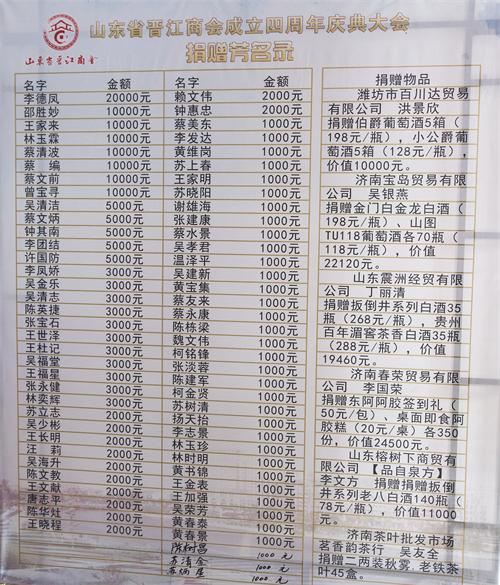 山东省晋江商会成立四周年庆典大会
捐赠芳名录
山东省晋江商会
名字 金额
李德凤 20000元
邵胜妙 10000元
王家来 10000元
林玉霖 10000元
蔡清波 10000元
蔡 编 10000元
蔡文前 10000元
曾宝寻 10000元
吴清洁 5000元
蔡文炳 5000元
钟其南 5000元
李团结 5000元
许国防 5000元
李凤娇 3000元
吴金乐 3000元
吴清志 3000元
陈英捷 3000元
张宝石 3000元
王世泽 3000元
王杜记 3000元
吴福堂 3000元
王福星 3000元
张永健 3000元
林奕辉 3000元
苏立志 2000元
吴少彬 2000元
王长明 2000元
汪 莉 2000元
吴海升 2000元
陈文教 2000元
王文献 2000元
唐志平 2000元
陈华灶 2000元
王晓程 2000元
名字 金额
赖文伟 2000元
钟惠忠 2000元
蔡美东 1000元
李发达 1000元
黄维岗 1000元
苏上春 1000元
王家明 1000元
苏晓阳 1000元
谢雄海 1000元
张建康 1000元
蔡水景 1000元
吴孝君 1000元
温泽平 1000元
吴建新 1000元
黄宝集 1000元
蔡友来 1000元
蔡永康 1000元
陈栋梁 1000元
魏文伟 1000元
柯铭锋 1000元
张淡蓉 1000元
陈建军 1000元
柯金贤 1000元
苏树清 1000元
扬天抬 1000元
李志景 1000元
林玉珍 1000元
林时明 1000元
黄书锦 1000元
王金表 1000元
王加强 1000元
吴荣芳 1000元
黄春泰 1000元
黄春景 1000元
陈树昌 1000元
苏清金 1000元
苏炳 1000元
捐赠物品
潍坊市百川达贸易
有限公司 洪景欣
捐赠伯爵葡萄酒5箱（
198元/瓶），小公爵葡
萄酒5箱（128元/瓶），
价值10000元。
济南宝岛贸易有限
公司 吴银燕
捐赠金门白金龙白酒（
198元/瓶）、山图
TU118葡萄酒各70瓶（
118元/瓶），价值
22120元。
山东震洲经贸有限
公司 丁丽清
捐赠扳倒井系列白酒35
瓶（268元/瓶），贵州
百年湄窖茶香白酒35瓶
（288元/瓶），价值
19460元。
济南春荣贸易有限
公司 李国荣
捐赠东阿阿胶签到礼（
50元/包）、桌面即食阿
胶糕（20元/桌）各350
份，价值24500元。
山东榕树下商贸有
限公司 【品自泉方】
李文方 捐赠捐赠扳倒
井系列老八白酒140瓶（
78元/瓶），价值11000
元。
济南茶叶批发市场
茗香韵茶行 吴友全
捐赠二两装秋雾.老铁茶
叶45盒。